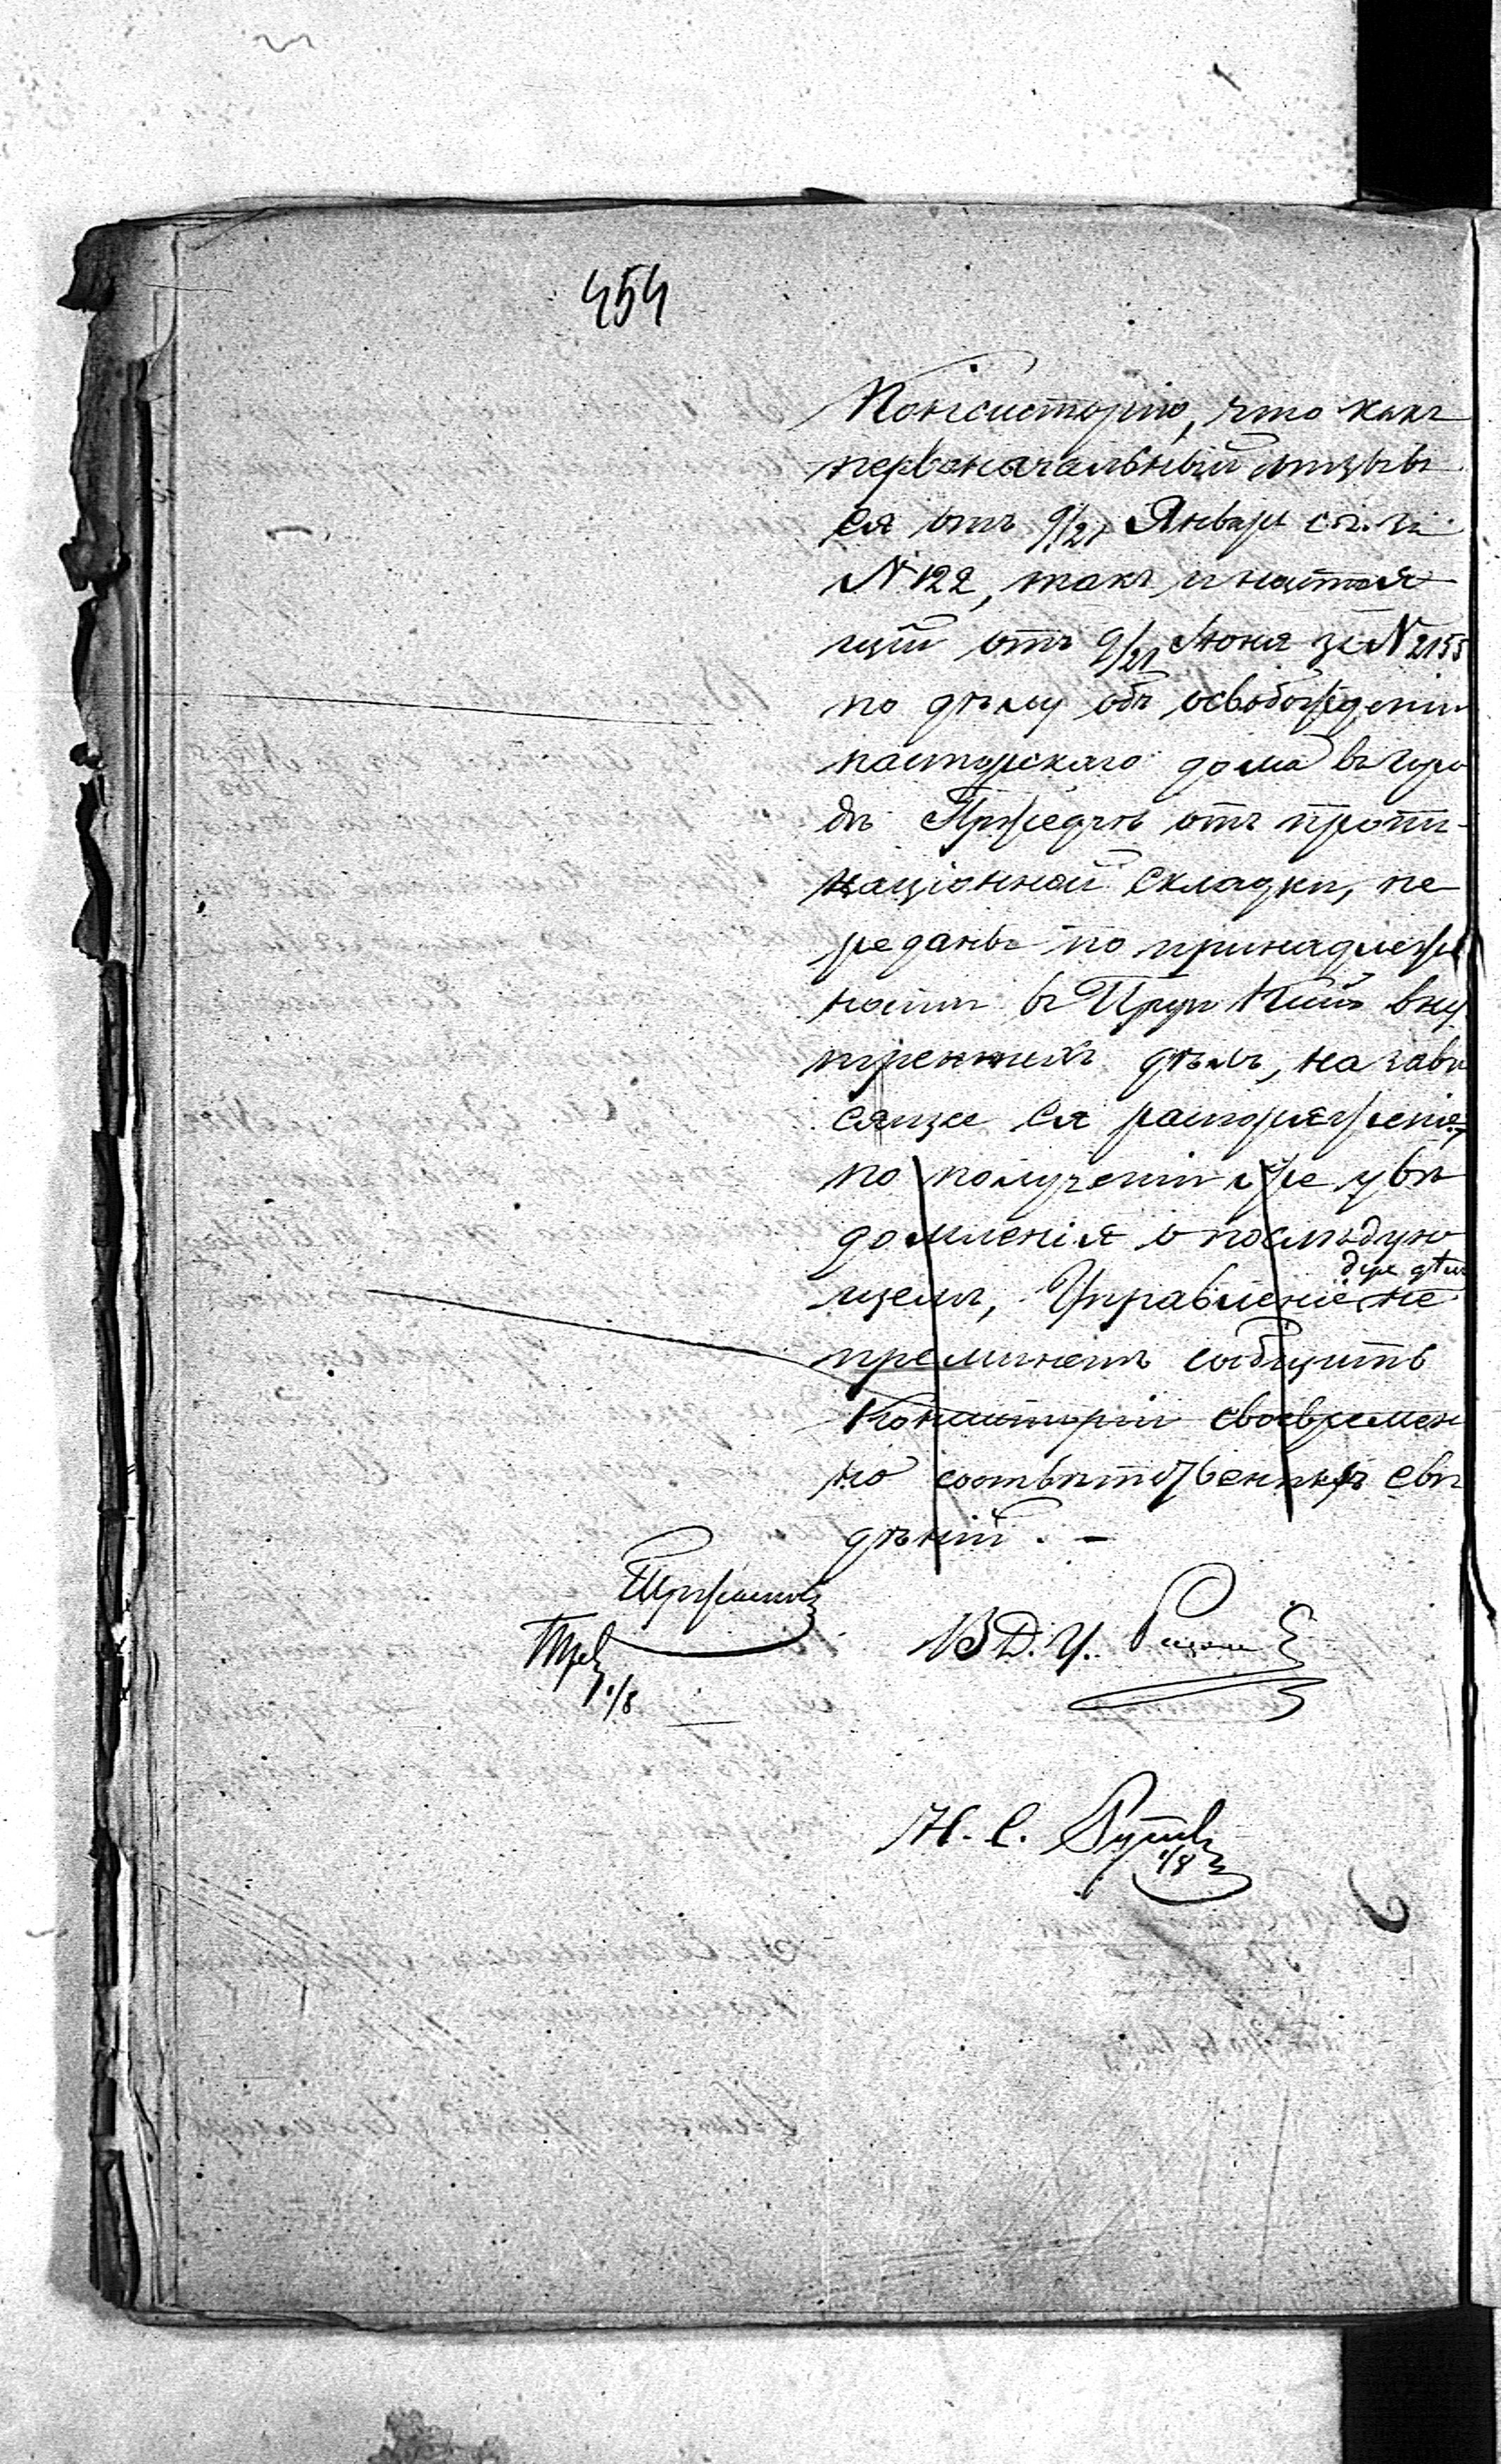 454
Консисторію, что какъ
первоначальный отзывъ
ея отъ 9/21 Января с. г. за
N 122, такъ и настоя
щій отъ 9/21 Іюня за N 2155
по дѣлу объ освобожденіи
пасторскаго дома въ горо
дѣ отъ
складки, пе
реданы по принадлеж
ности въ Ком. вну
треннихъ дѣлъ, на зави
сящее ея распоряженіе,
по полученіи же увѣ
домленія о послѣдую
щемъ, Управленіе не
преминетъ сообщить
Консисторіи своевремен
но соотвѣтственныхъ свѣ
дѣній. —
В Д. У.
1/8
Н. С.
1/8